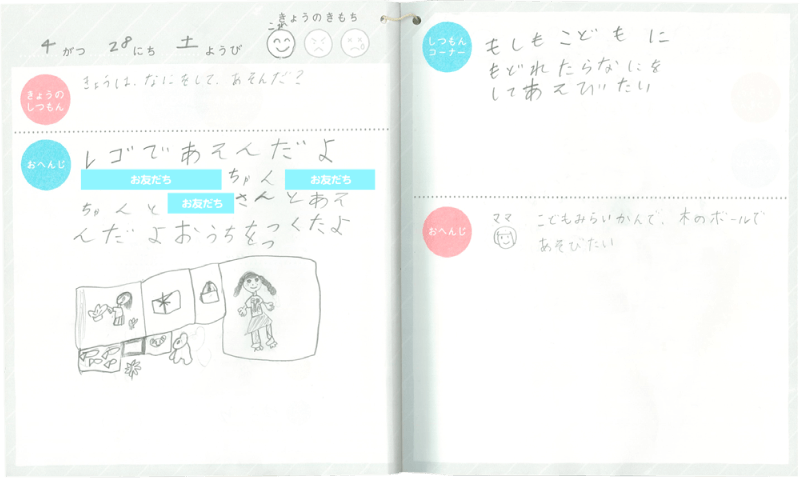 きょうのきもち
4 がつ 28 にち 土 ようび
きょうの
しつもん
きょうは、なにをして、あそんだ？
おへんじ
レゴであそんだよ
お友だち ちゃん お友だち
ちゃんと お友だち さんとあそ
んだよおうちをつくったよ
しつもん
コーナー
もしもこどもに
もどれたらなにを
してあそびたい
おへんじ
ママ
こどもみらいかんで、木のボールで
あそびたい